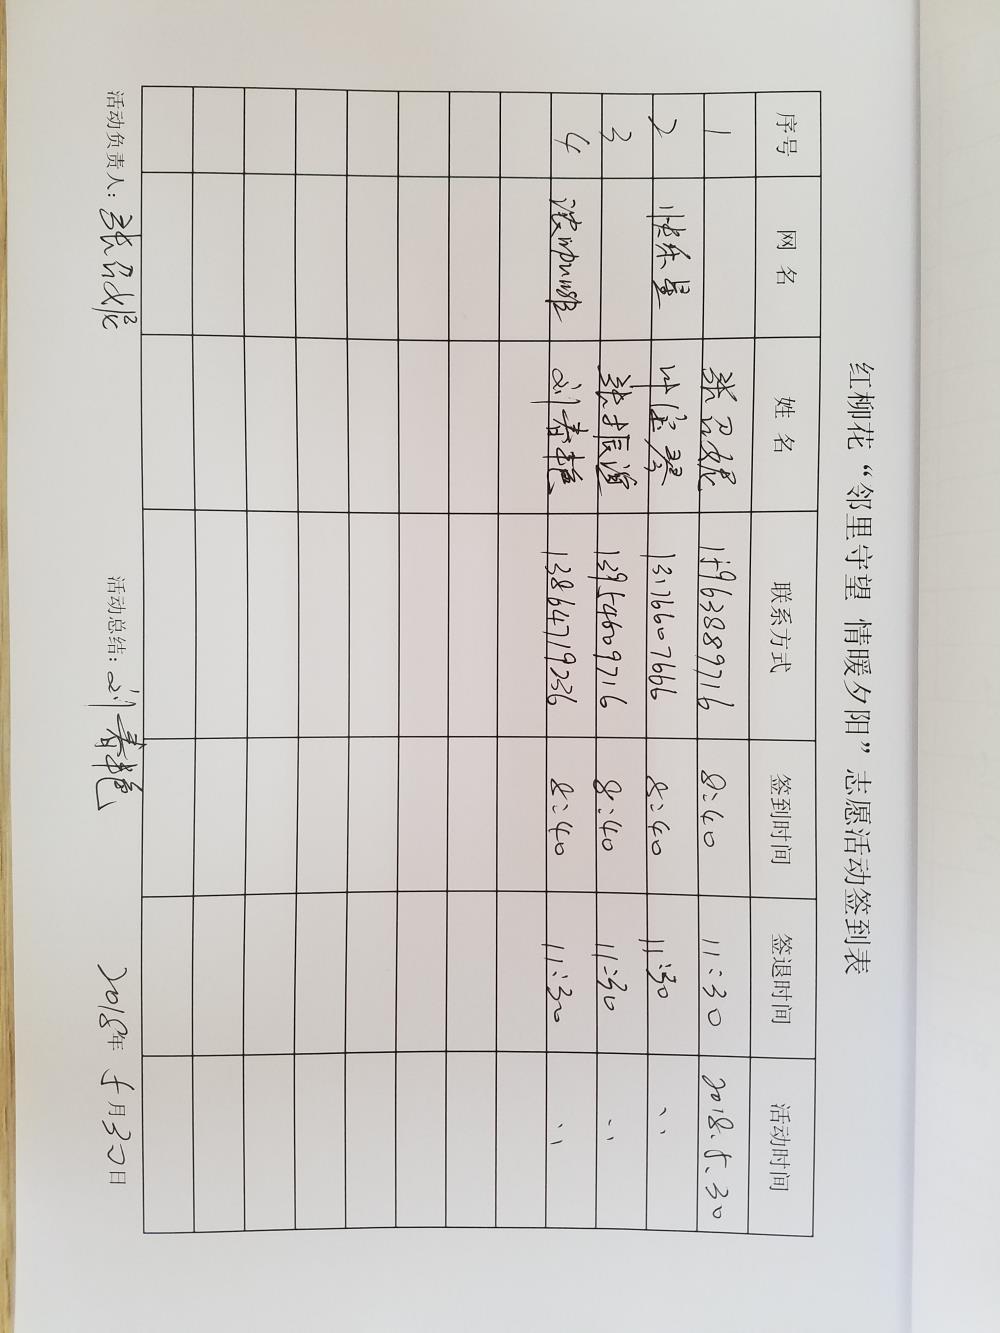 红柳花“邻里守望 情暖夕阳”志愿活动签到表
序号 网名 姓名 联系方式 签到时间 签退时间 活动时间
1 张 8:40 11:30 2018.5.30
2 快乐星 13176607666 8:40 11:30 〃
3 张振 13954609716 8:40 11:30 〃
4 刘春艳 13864719236 8:40 11:30 〃
活动负责人: 张 活动总结: 刘春艳 2018年5月30日